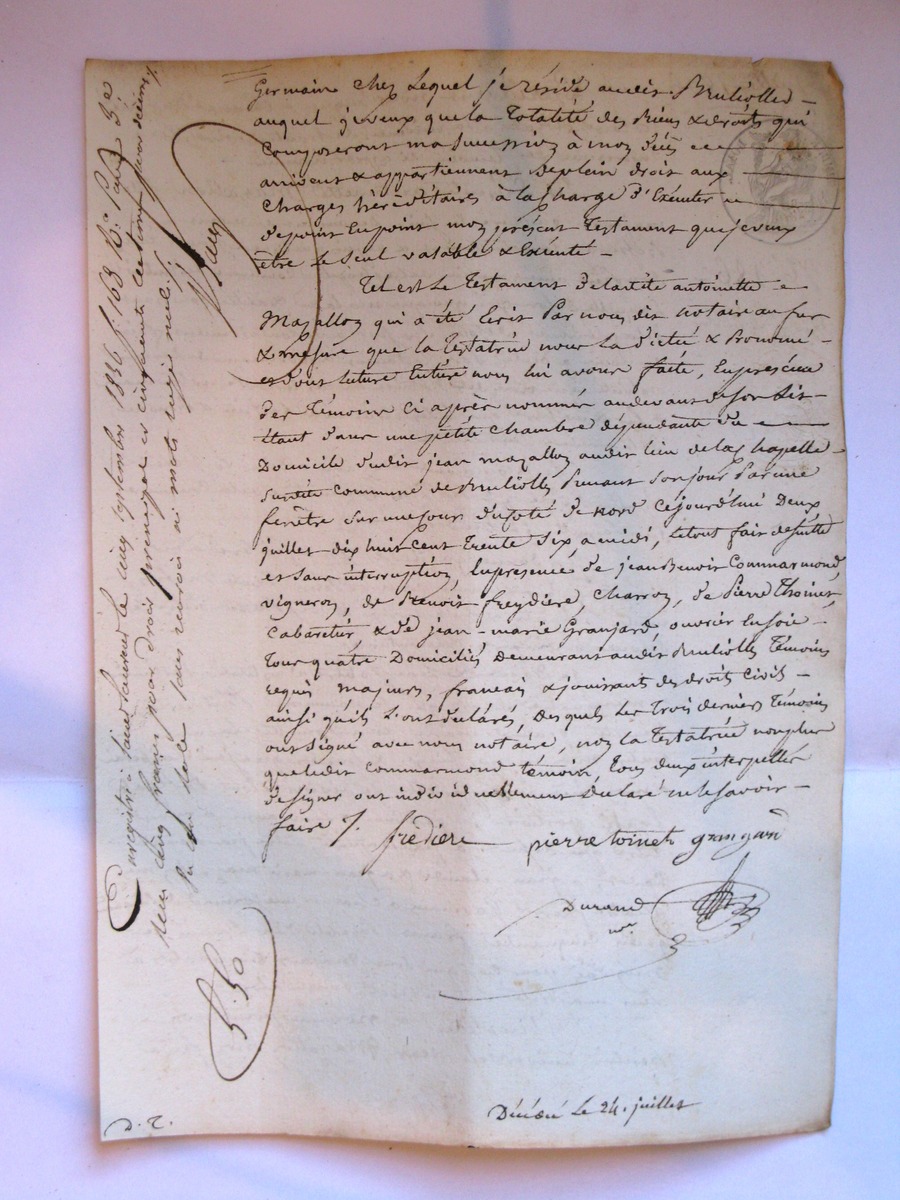 Germain chez Lequel je réside audit Brullioles –
auquel je veux que la Totalité des Biens & droits qui
composeront ma Succession à mon décès
arrivent & appartiennent de plein droit aux
charges héréditaires à la charge d'Exécuter
de point en point mon présent Testament que je veux
être le seul valable & Exécuté –
Tel est le Testament de ladite antoinette
Mazallon qui a été Ecrit Par nous dit notaire au fur
& mesure que la Testatrice nous l'a dicté & prononcé –
et dont lecture Entière nous lui avons faite, En présence
des Témoins ci après nommés au devant de son Lit –
étant dans une petite chambre dépendante du
Domicile dudit jean mazallon audit lieu de la chapelle
susdite commune de Brullioles Prenant son jour Par une
fenêtre sur une cour du côté de nord cejourd'hui Deux
juillet dix huit cent Trente Six, a midi, le tout fait de suitte
et sans interruption, En présence de jean Benoit Commarmond,
vigneron, de Benoit freydiere, charron, de Pierre Thoinet,
Cabaretier, & de jean-marie Granjard, ouvrier En soie –
Tous quatre Domiciliés Demeurant audit Brullioles Témoins
requis majeurs, français & jouissant des droits civils –
ainsi qu'ils l'ont déclarés, desquels les Trois derniers Témoins
ont signé avec nous notaire, non la Testatrice non plus
que ledit Commarmond Témoin, Tous deux interpellés
de signer ont individuellement déclaré ne le savoir –
faire /.
frediere pierre toinet granjard
Durand
nre
Enregistré à Saint Laurent le cinq septembre 1836 f° 163 Rc. Case 5e
reçu cinq francs pour droit principal et cinquante centimes pour décime
5.50
Décédé le 24. juillet
D. T.